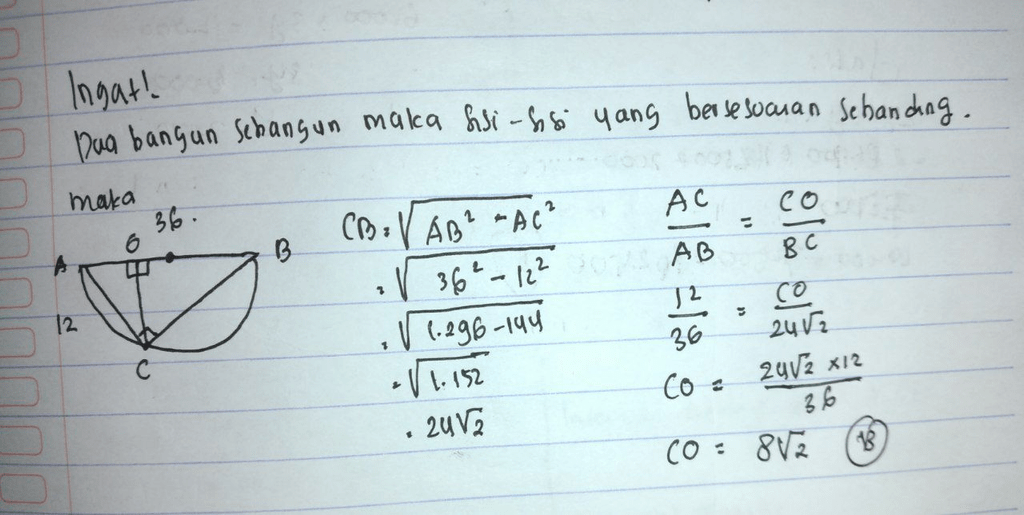 Ingat!
Dua bangun sebangun maka sisi-sisi yang bersesuaian sebanding.
maka
36.
O
A
B
12
C
CB = √AB² - AC²
= √36² - 12²
= √1.296 - 144
= √1.152
= 24√2
AC/AB = CO/BC
12/36 = CO/24√2
CO = 24√2 x 12/36
CO = 8√2 (B)